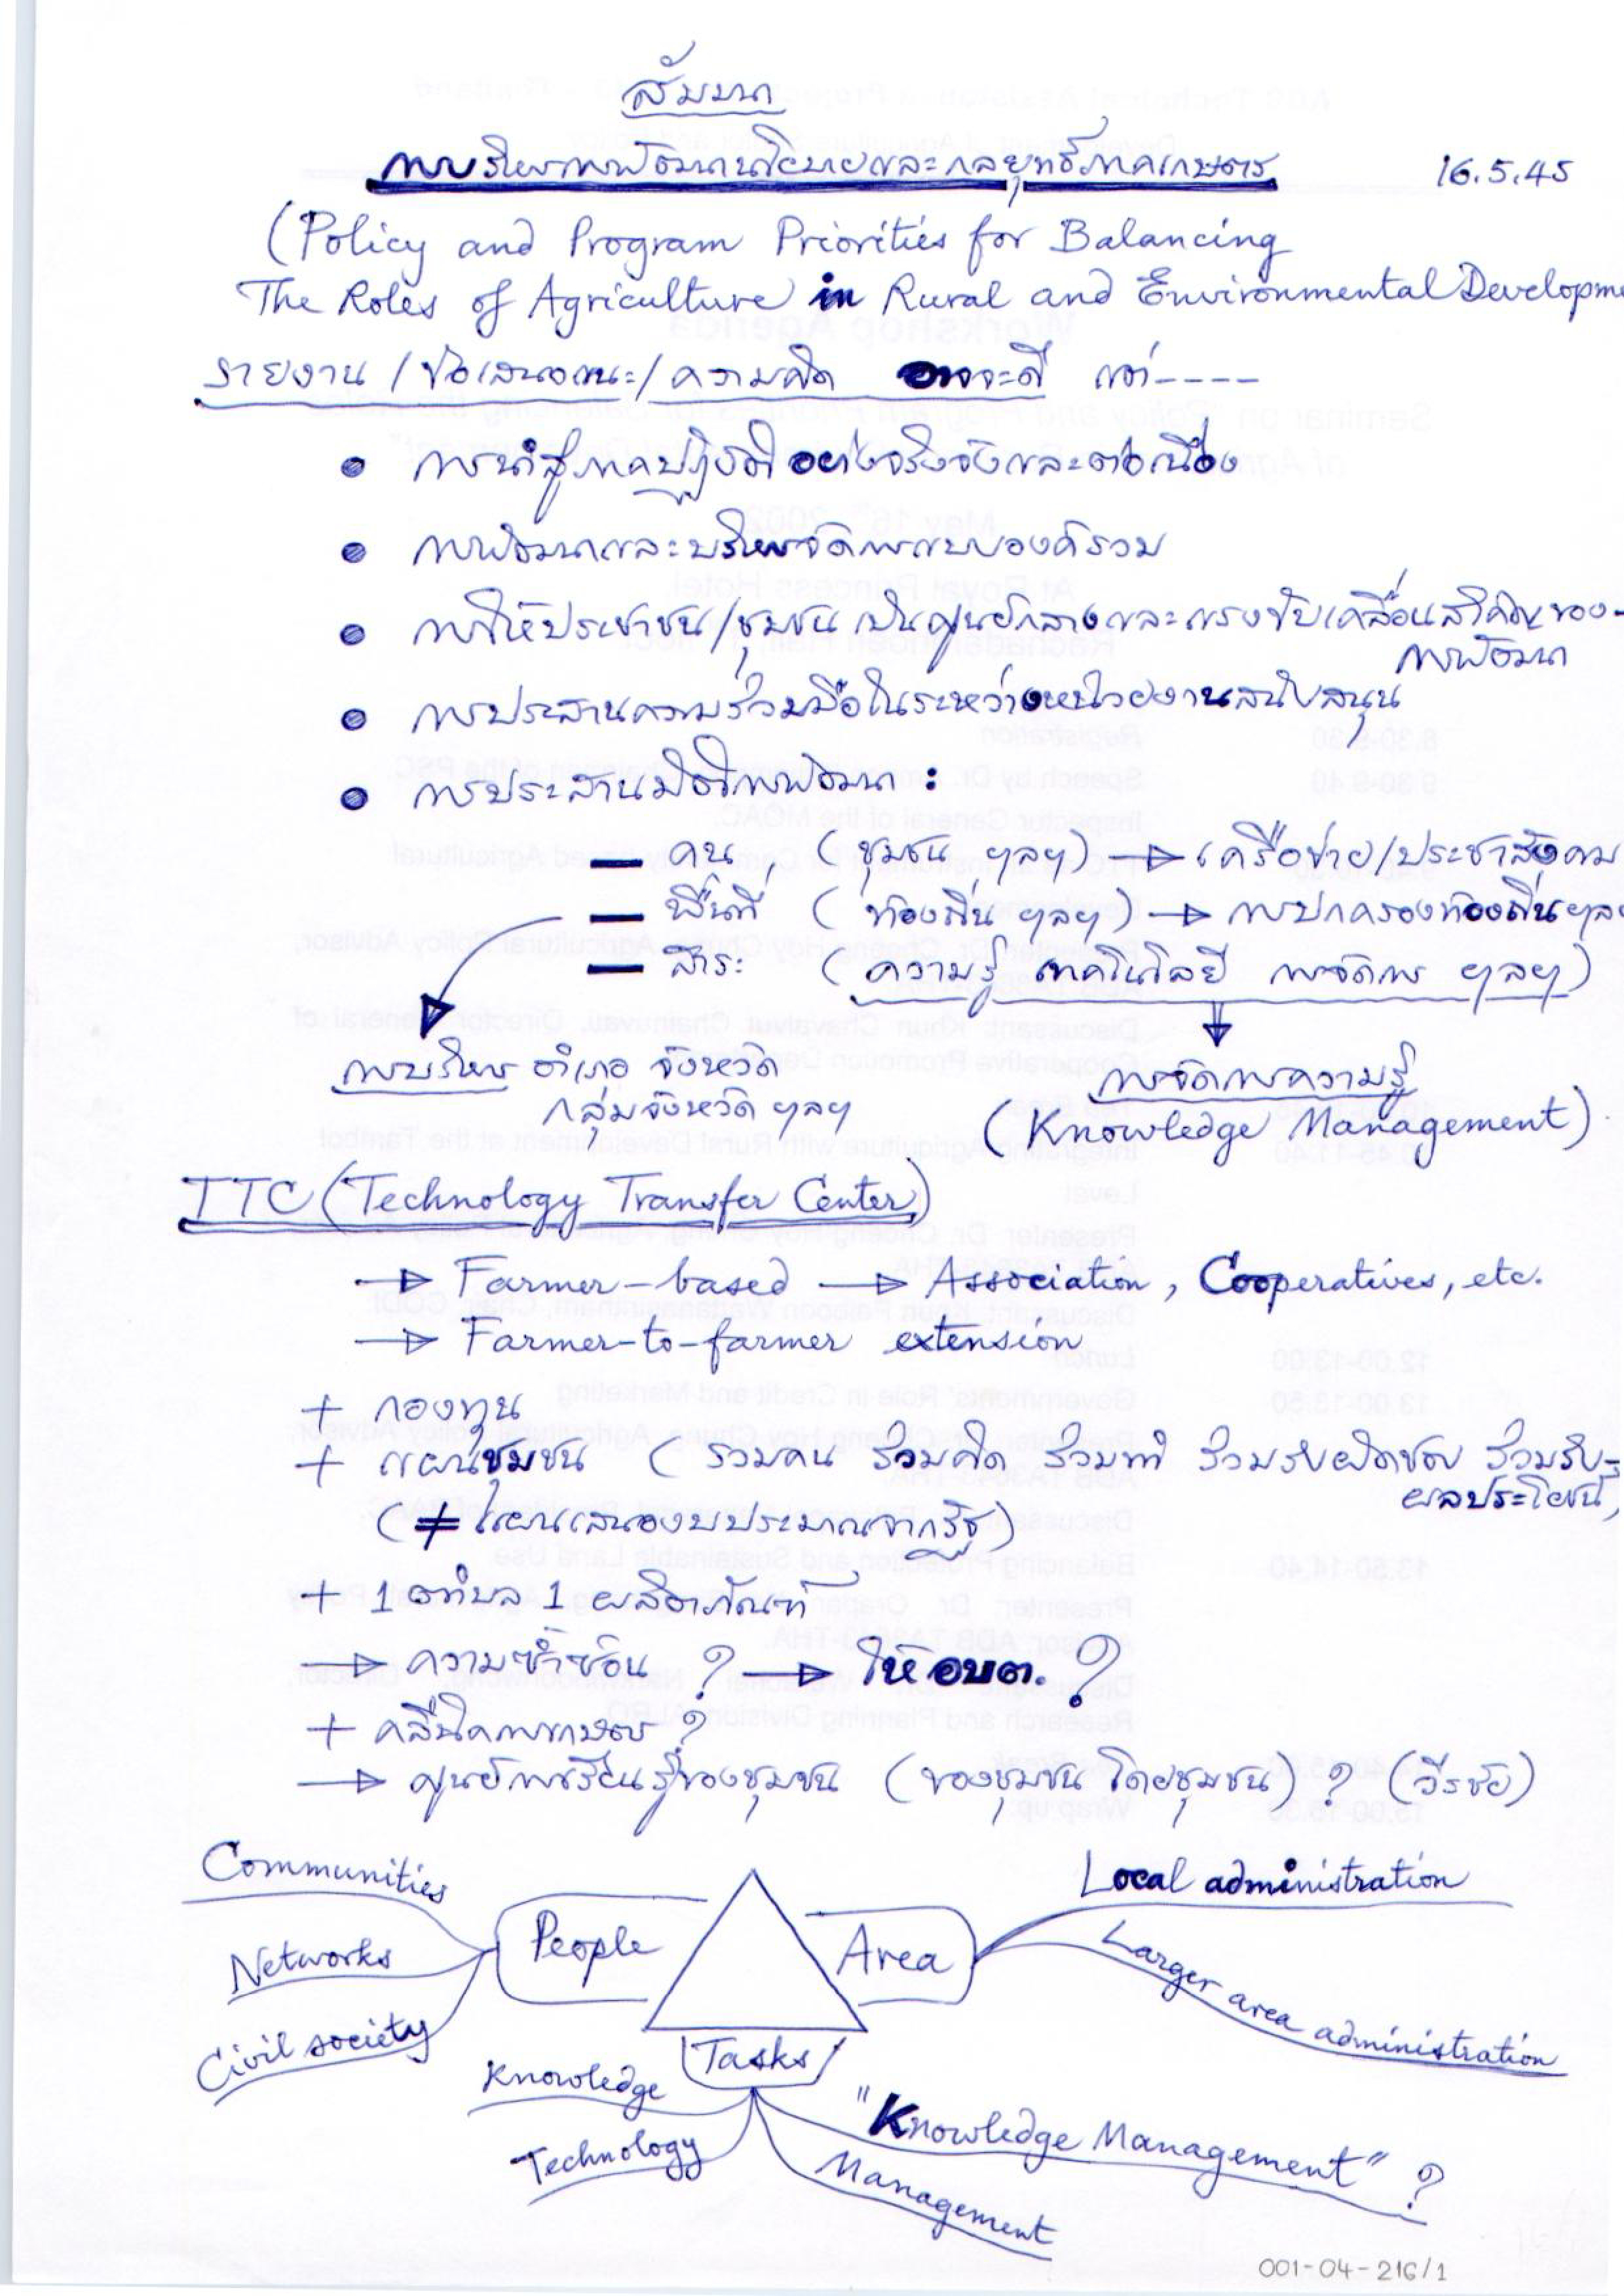 สัมมนา
การบริหารการพัฒนานโยบายและกลยุทธ์ภาคเกษตร 16.5.45
(Policy and Program Priorities for Balancing
The Roles of Agriculture in Rural and Environmental Developme
รายงาน / ข้อเสนอแนะ / ความคิด อาจจะดี แต่----
• การนำสู่ภาคปฏิบัติอย่างจริงจังและต่อเนื่อง
• การพัฒนาและบริหารจัดการแบบองค์รวม
• การให้ประชาชน/ชุมชน เป็นศูนย์กลางและแรงขับเคลื่อนสำคัญของ-
การพัฒนา
• การประสานความร่วมมือในระหว่างหน่วยงานสนับสนุน
• การประสานมิติการพัฒนา :
— คน (ชุมชน ฯลฯ) → เครือข่าย/ประชาสังคม
— พื้นที่ (ท้องถิ่น ฯลฯ) → การปกครองท้องถิ่น ฯลฯ
— สาระ (ความรู้ เทคโนโลยี การจัดการ ฯลฯ)
การบริหาร อำเภอ จังหวัด
กลุ่มจังหวัด ฯลฯ
การจัดการความรู้
(Knowledge Management)
TTC (Technology Transfer Center)
→ Farmer-based → Association, Cooperatives, etc.
→ Farmer-to-farmer extension
+ กองทุน
+ แผนชุมชน (รวมคน ร่วมคิด ร่วมทำ ร่วมรับผิดชอบ ร่วมรับ-
ผลประโยชน์)
(≠ แผนเสนองบประมาณจากรัฐ)
+ 1 ตำบล 1 ผลิตภัณฑ์
→ ความซ้ำซ้อน ? → ให้ อบต. ?
+ คลีนิคการเกษตร ?
→ ศูนย์การเรียนรู้ของชุมชน (ของชุมชน โดยชุมชน) ? (วีรชัย)
Communities
Networks
Civil society
People
Area
Local administration
Larger area administration
Tasks
Knowledge
Technology
"Knowledge Management" ?
Management
001-04-216/1